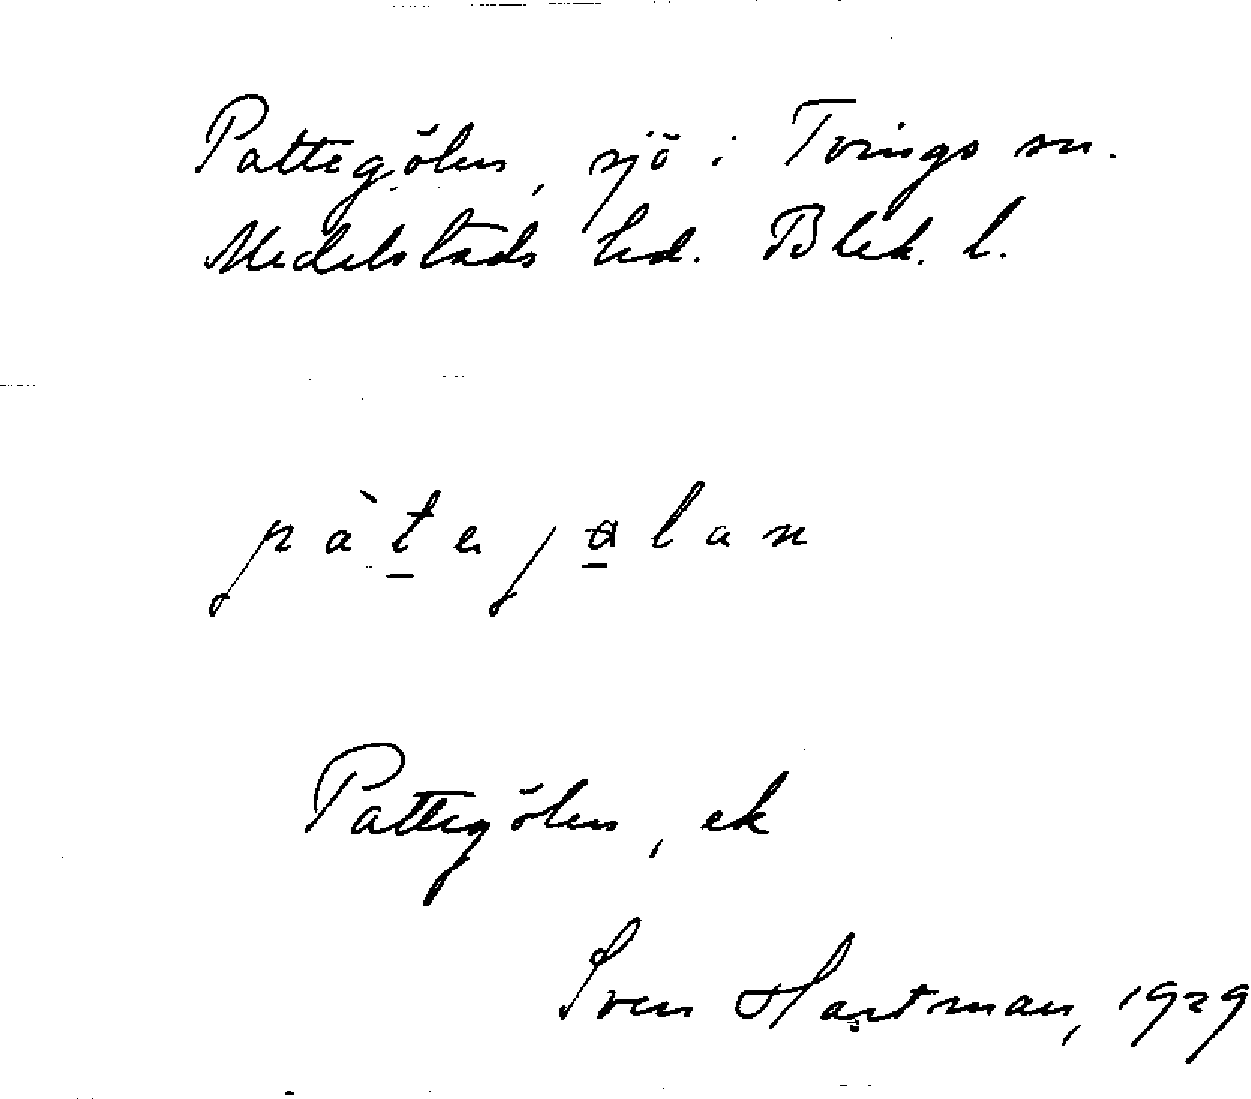 Pattegölen, sjö i Tvings sn.
Medelstads hd. Blek. l.
pàtejalan
Pattegölen, ek
Sven Hartman, 1929